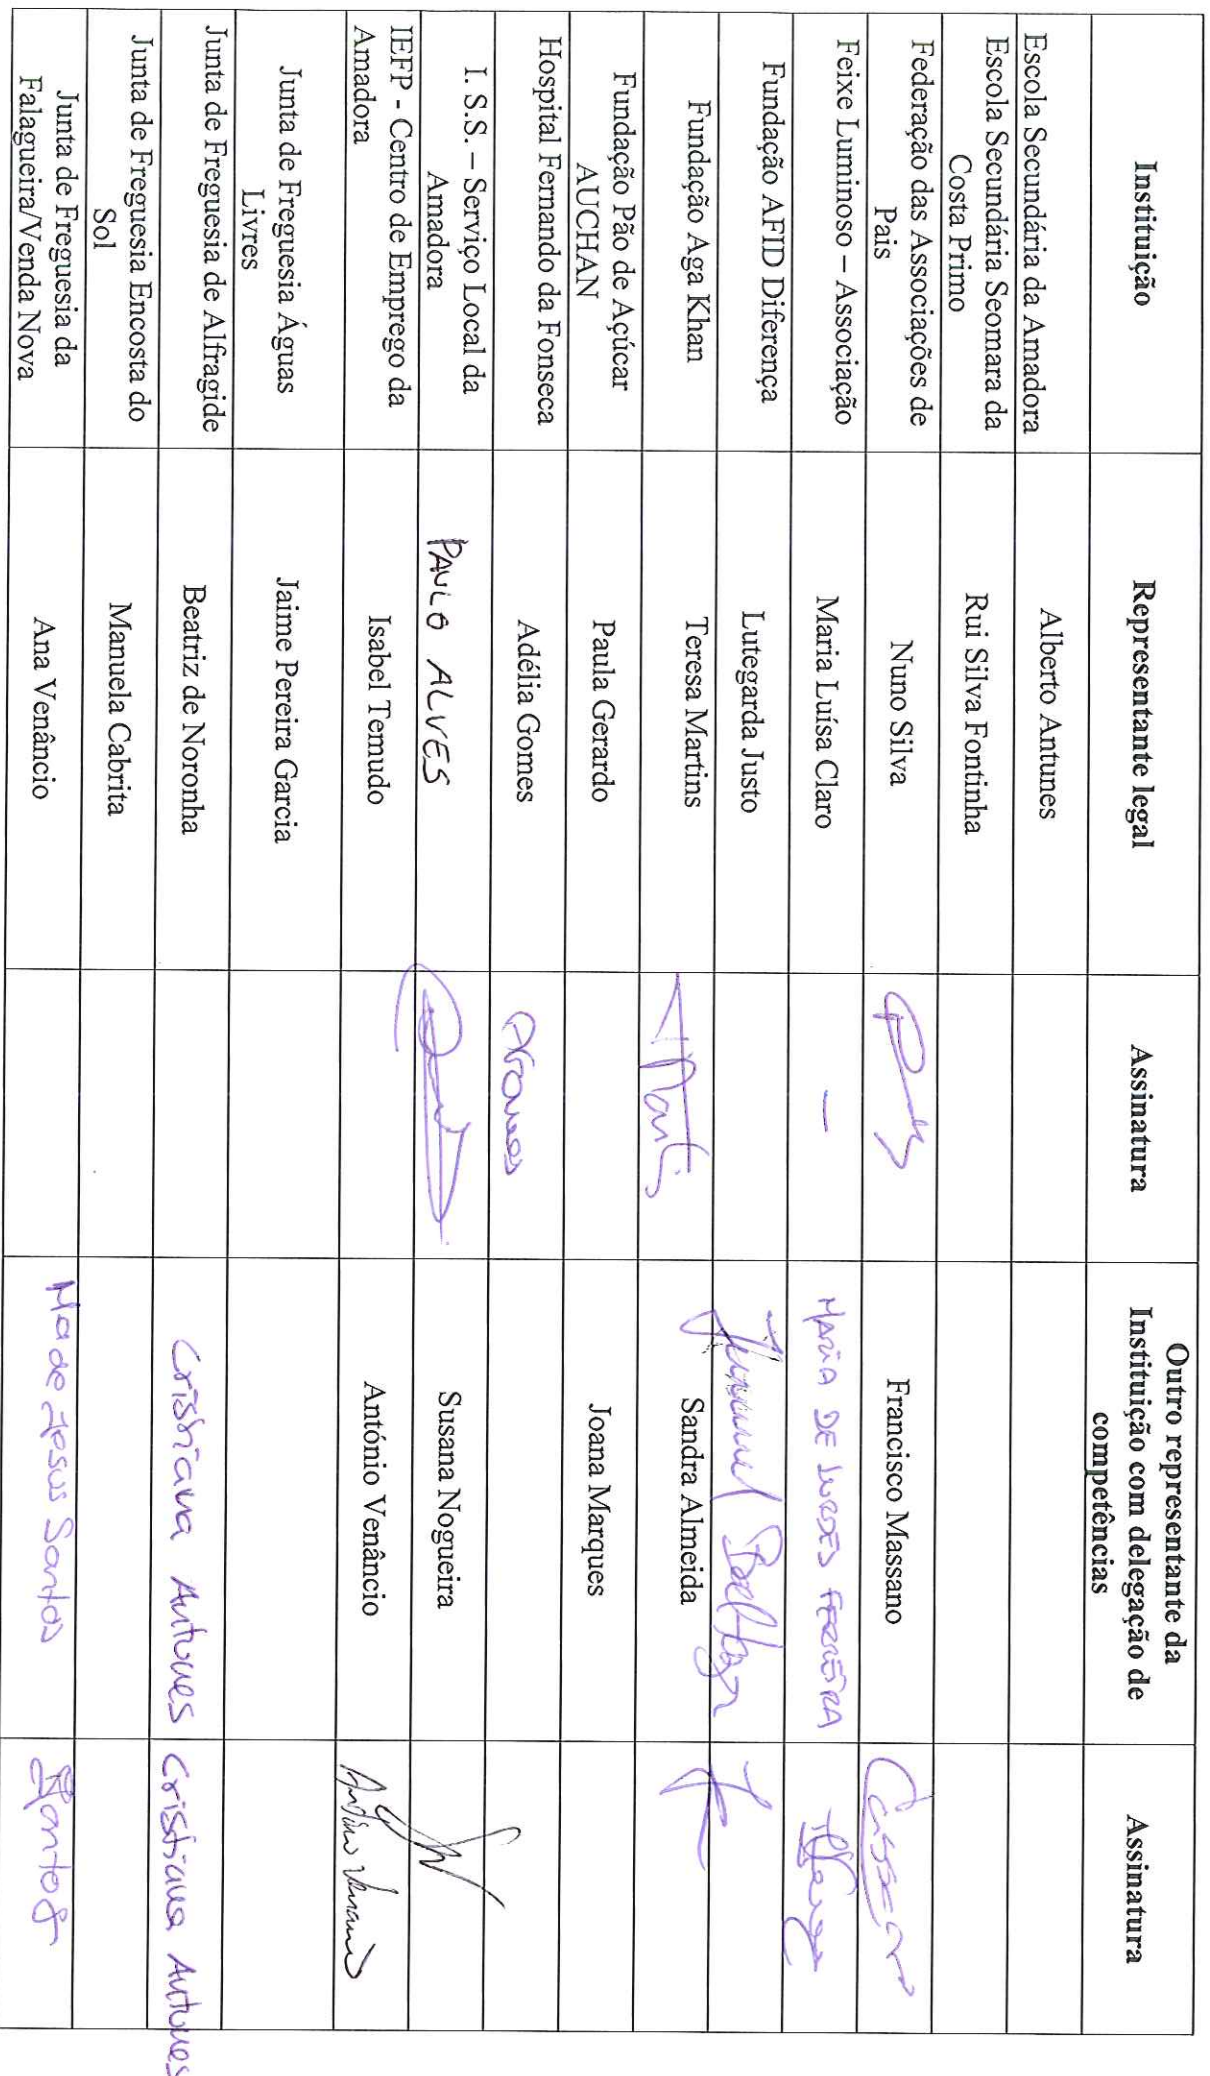 Instituição
Representante legal
Assinatura
Outro representante da
Instituição com delegação de
competências
Assinatura
Escola Secundária da Amadora
Alberto Antunes
Escola Secundária Seomara da
Costa Primo
Rui Silva Fontinha
Federação das Associações de
Pais
Nuno Silva
Francisco Massano
Feixe Luminoso – Associação
Maria Luísa Claro
—
MARIA DE LURDES FERREIRA
Fundação AFID Diferença
Lutegarda Justo
Fundação Aga Khan
Teresa Martins
Sandra Almeida
Fundação Pão de Açúcar
AUCHAN
Paula Gerardo
Joana Marques
Hospital Fernando da Fonseca
Adélia Gomes
I. S.S. – Serviço Local da
Amadora
PAULO ALVES
Susana Nogueira
IEFP - Centro de Emprego da
Amadora
Isabel Temudo
António Venâncio
António Venancio
Junta de Freguesia Águas
Livres
Jaime Pereira Garcia
Junta de Freguesia de Alfragide
Beatriz de Noronha
Cristiana Antunes
Cristiana Antunes
Junta de Freguesia Encosta do
Sol
Manuela Cabrita
Junta de Freguesia da
Falagueira/Venda Nova
Ana Venâncio
Ma de Jesus Santos